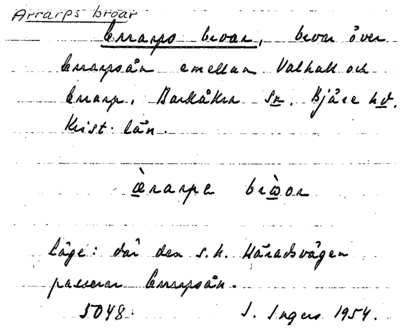 Arrarps broar
Arrarps broar, broar över
Arrarpsån emellan Valhall och
Arrarp, Barkåkra sn. Bjäre hd.
Krist. län.
àrarpa bròor
Läge: där den s.k. Häradsvägen
passerar Arrarpsån.
5048. I. Ingers 1954.